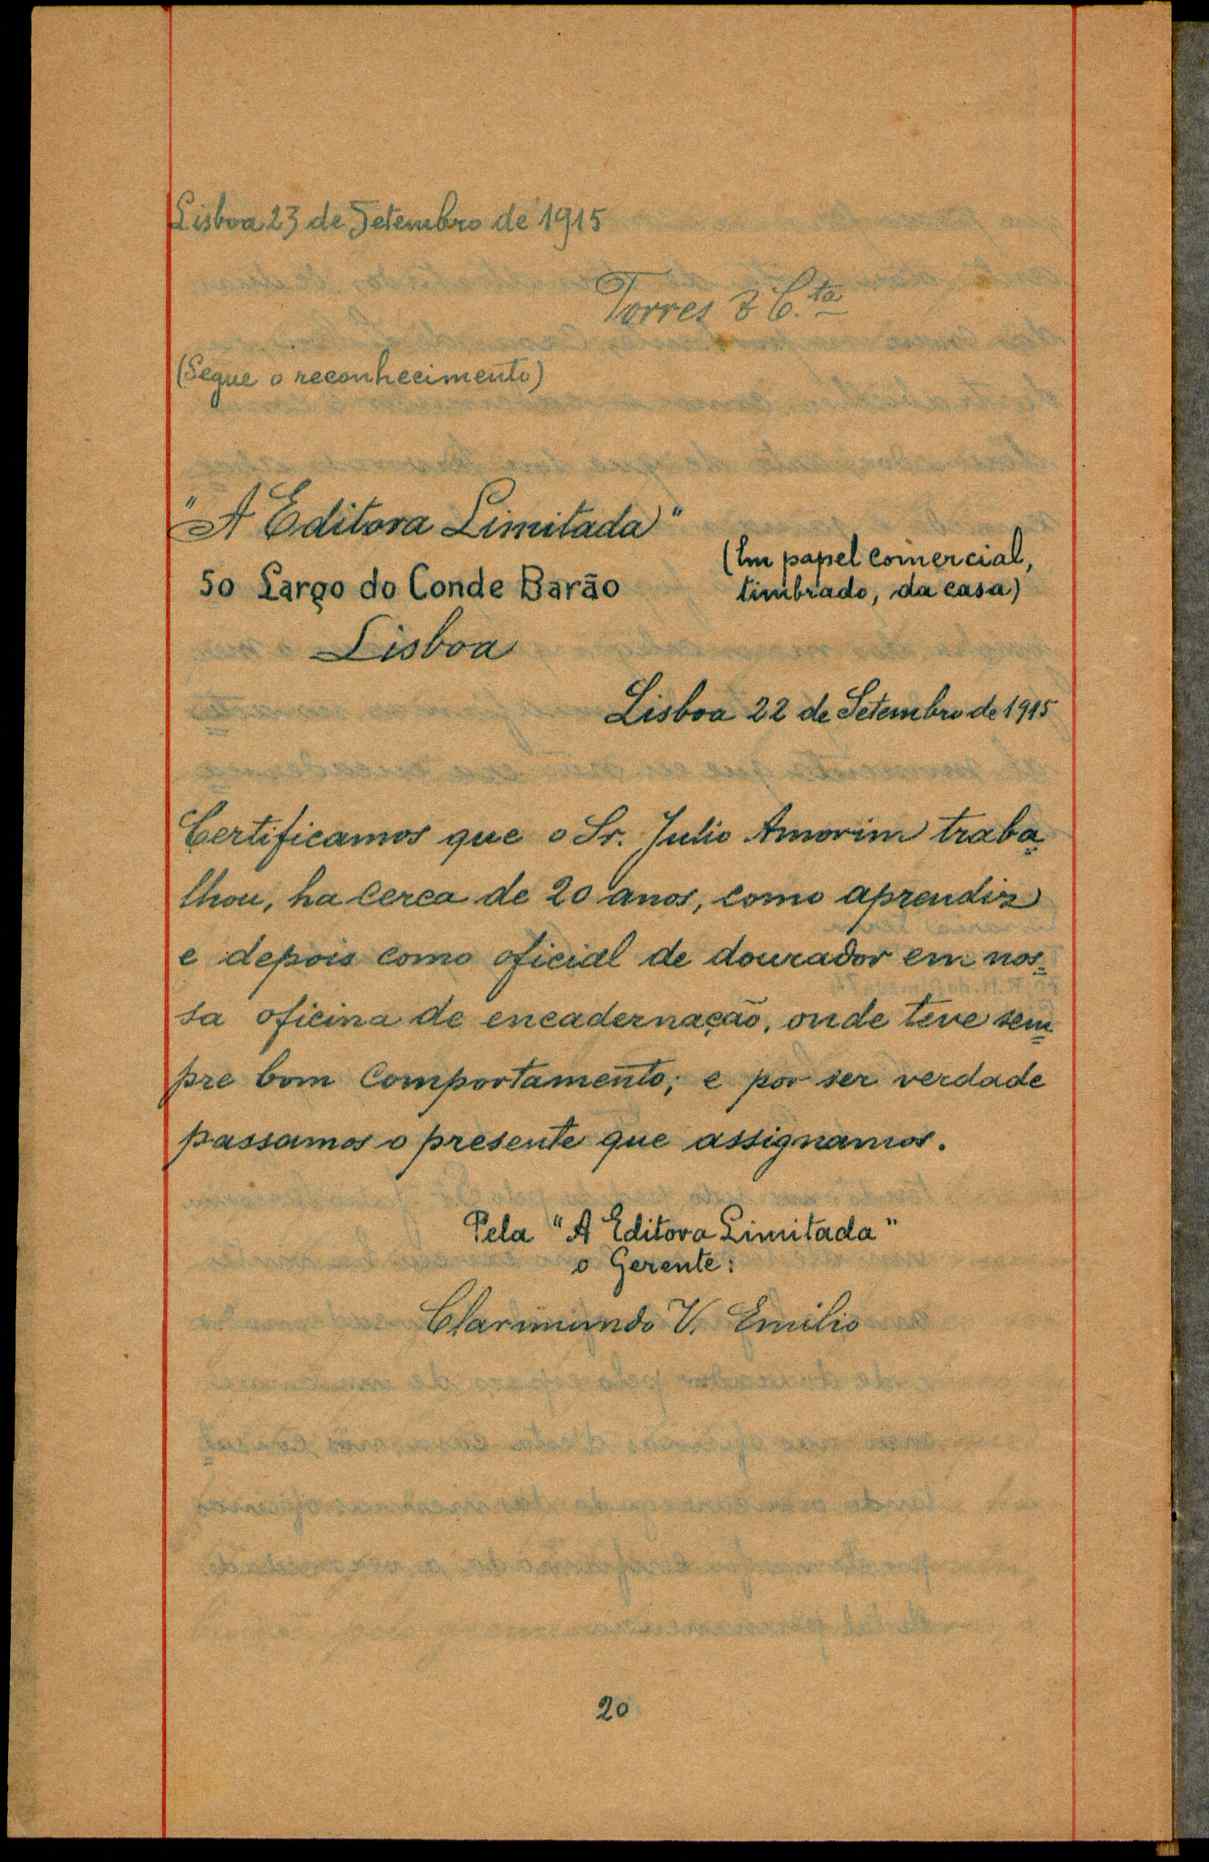 Lisboa 23 de Setembro de 1915
Torres & C.ta
(Segue o reconhecimento)
"A Editora Limitada"
(Em papel comercial,
50 Largo do Conde Barão
timbrado, da casa)
Lisboa
Lisboa 22 de Setembro de 1915
Certificamos que o Sr. Julio Amorim traba-
lhou, ha cerca de 20 anos, como aprendiz
e depois como oficial de dourador em nos-
sa oficina de encadernação, onde teve sem-
pre bom comportamento; e por ser verdade
passamos o presente que assignamos.
Pela "A Editora Limitada"
o Gerente:
Clarimundo V. Emilio
20